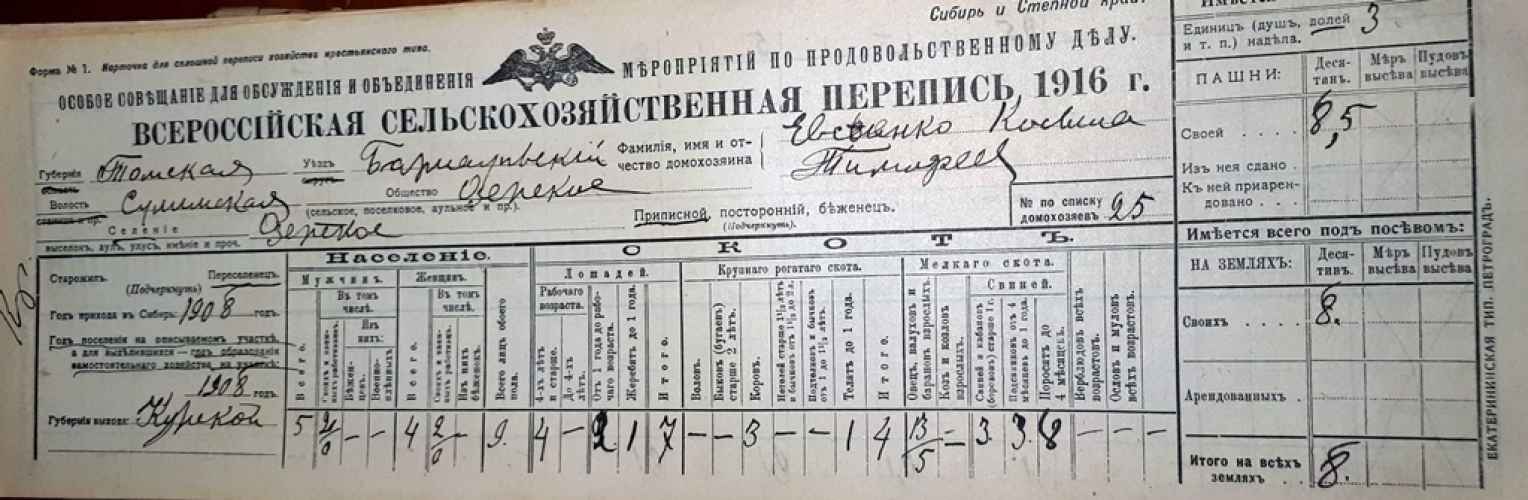 Сибирь и Степной край.
Форма № 1. Карточка для сплошной переписи хозяйствъ крестьянскаго типа.
ОСОБОЕ СОВѢЩАНІЕ ДЛЯ ОБСУЖДЕНІЯ И ОБЪЕДИНЕНІЯ МѢРОПРІЯТІЙ ПО ПРОДОВОЛЬСТВЕННОМУ ДѢЛУ.
ВСЕРОССІЙСКАЯ СЕЛЬСКОХОЗЯЙСТВЕННАЯ ПЕРЕПИСЬ 1916 г.
Губернія Томская Уѣздъ Барнаульскій Фамилія, имя и отчество домохозяина Косьма
Тимофеев
Волость Общество
(сельское, поселковое, аульное и пр.).
Приписной, посторонній, бѣженецъ.
(Подчеркнуть).
№ по списку домохозяевъ 25
Селеніе
выселокъ, аулъ, улусъ, имѣніе и проч.
Старожилъ. Переселенецъ.
(Подчеркнуть)
Годъ прихода въ Сибирь 1908 годъ.
Годъ поселенія на описываемомъ участкѣ,
а для выдѣлившихся — годъ образованія
самостоятельнаго хозяйства на участкѣ:
1908 годъ.
Губернія выхода: Курской
Населеніе.
Мужчинъ. Женщинъ.
Всего. Въ томъ числѣ. Изъ нихъ: Бѣженцевъ. Военноплѣнныхъ
Всего. Въ томъ числѣ. Изъ нихъ бѣженокъ.
Всего лицъ обоего пола.
5 2/0 — — 4 2/0 — 9.
СКОТЪ.
Лошадей. Крупнаго рогатаго скота. Мелкаго скота.
Рабочаго возраста. Свиней.
4-хъ лѣтъ и старше.
До 4-хъ лѣтъ.
Отъ 1 года до рабочаго возраста.
Жеребятъ до 1 года.
Итого.
Воловъ.
Быковъ (бугаевъ) старше 2 лѣтъ.
Коровъ.
Нетелей старше 1½ лѣтъ и бычковъ отъ 1½ до 2 л.
Подтелковъ и бычковъ отъ 1 до 1½ лѣтъ.
Телятъ до 1 года.
Итого.
Овецъ, валуховъ и барановъ взрослыхъ.
Козъ и козловъ взрослыхъ.
Свиней и кабановъ (борововъ) старше 1 г.
Подсвинковъ отъ 4 мѣсяцевъ до 1 года.
Поросятъ до 4 мѣсяцевъ.
Верблюдовъ всѣхъ возрастовъ.
Ословъ и муловъ всѣхъ возрастовъ.
4 — 2 1 7 — — 3 — — 1 4 13/5 — 3. 3. 8 — — —
Единицъ (душъ, долей и т. п.) надѣла. 3
ПАШНИ: Десятинъ. Мѣръ высѣва Пудовъ высѣва
Своей . . . . 8,5
Изъ нея сдано .
Къ ней приарендовано . . .
Имѣется всего подъ посѣвомъ:
НА ЗЕМЛЯХЪ: Десятинъ. Мѣръ высѣва Пудовъ высѣва
Своихъ . . . . 8.
Арендованныхъ .
Итого на всѣхъ земляхъ . . 8.
ЕКАТЕРИНИНСКАЯ ТИП. ПЕТРОГРАДЪ.